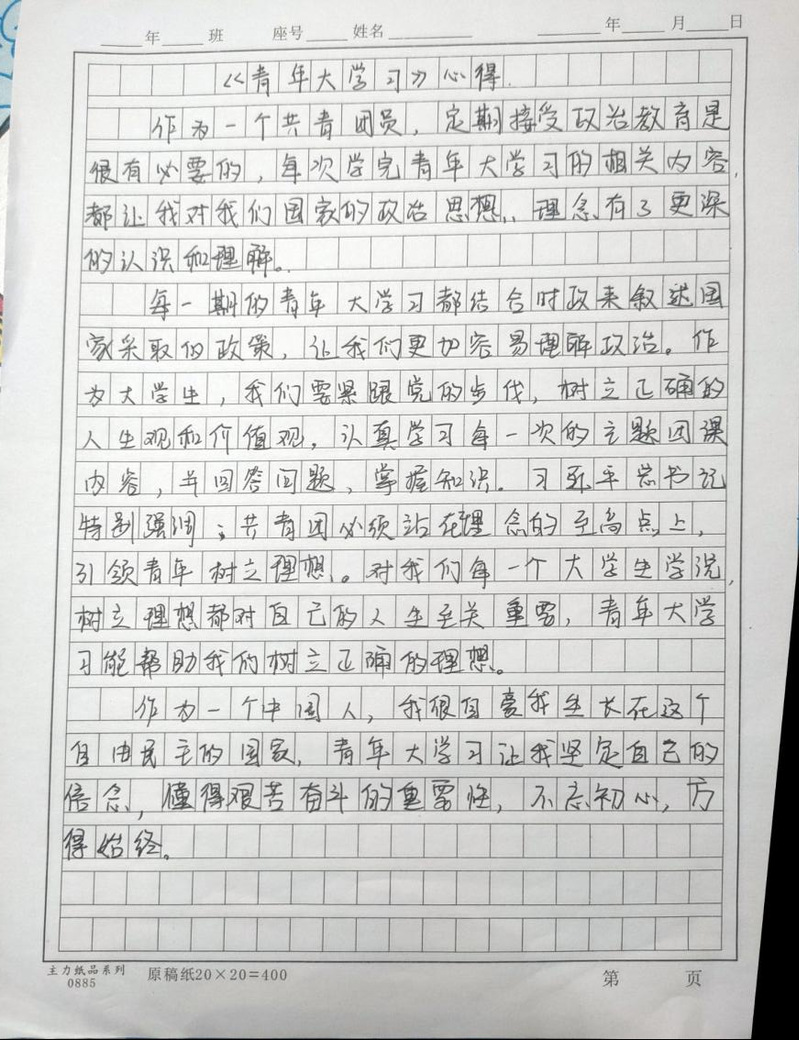 年 班 座号 姓名 年 月 日
《青年大学习》心得.
作为一个共青团员，定期接受政治教育是
很有必要的，每次学完青年大学习的相关内容，
都让我对我们国家的政治思想、理念有了更深
的认识和理解。
每一期的青年大学习都结合时政来叙述国
家采取的政策，让我们更加容易理解政治。作
为大学生，我们要紧跟党的步伐，树立正确的
人生观和价值观，认真学习每一次的主题团课
内容，并回答问题、掌握知识. 习近平总书记
特别强调；共青团必须站在理念的至高点上，
引领青年树立理想。对我们每一个大学生学说，
树立理想都对自己的人生至关重要，青年大学
习能帮助我们树立正确的理想。
作为一个中国人，我很自豪我生长在这个
自由民主的国家，青年大学习让我坚定自己的
信念，懂得艰苦奋斗的重要性，不忘初心，方
得始终。
主力纸品系列
0885
原稿纸20×20=400
第 页